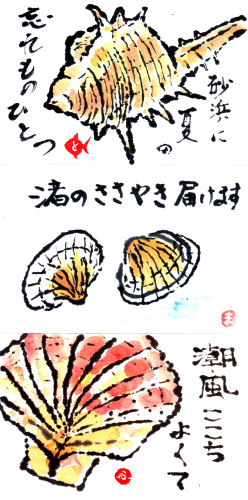 砂浜に
夏の
忘れもの
ひとつ
と
渚のささやき届けます
ま
潮風ここち
よくて